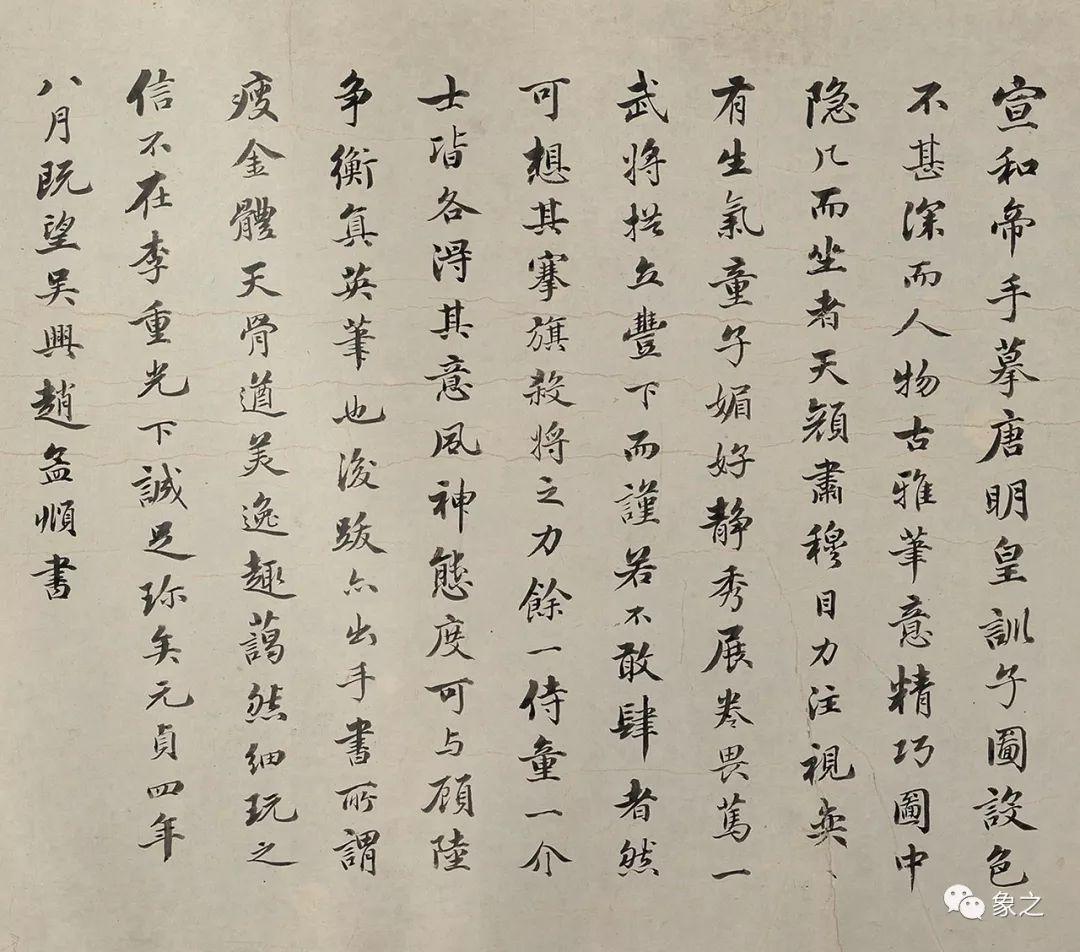 宣和帝手摹唐明皇訓子圖設色
不甚深而人物古雅筆意精巧圖中
隐几而坐者天顏肅穆目力注視奕
有生氣童子媚好静秀展卷畏篤一
武将拱立豐下而謹若不敢肆者然
可想其搴旗殺将之力餘一侍童一介
士皆各得其意風神態度可与顾陸
争衡真英筆也後跋亦出手書所謂
瘦金體天骨遒美逸趣藹然細玩之
信不在李重光下誠足珎矣元貞四年
八月既望吴興趙孟順書
象之